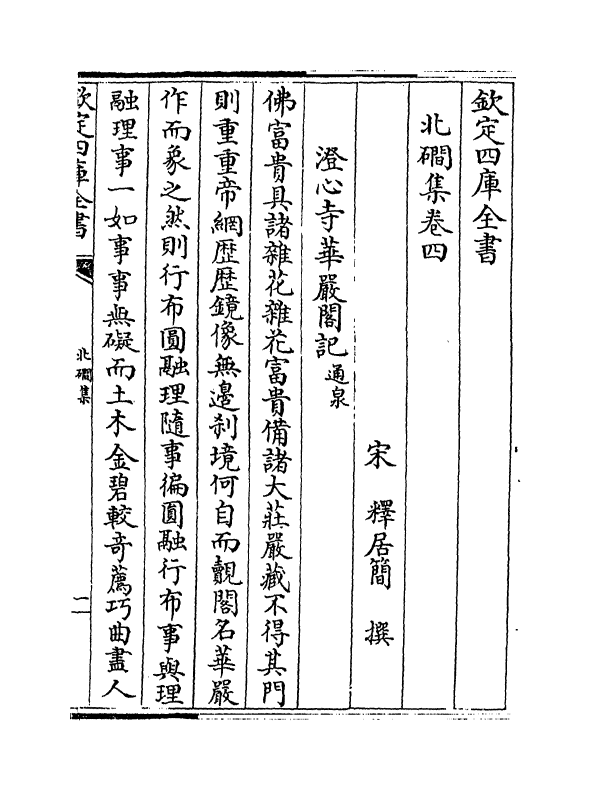 欽定四庫全書
北磵集卷四
宋　釋居簡　撰
澄心寺華嚴閣記通泉
佛富貴具諸雜花雜花富貴備諸大莊嚴藏不得其門
則重重帝網歴歴鏡像無邊刹境何自而覿閣名華嚴
作而象之然則行布圓融理隨事徧圓融行布事與理
融理事一如事事無礙而土木金碧較奇薦巧曲盡人
欽定四庫全書
北磵集
一